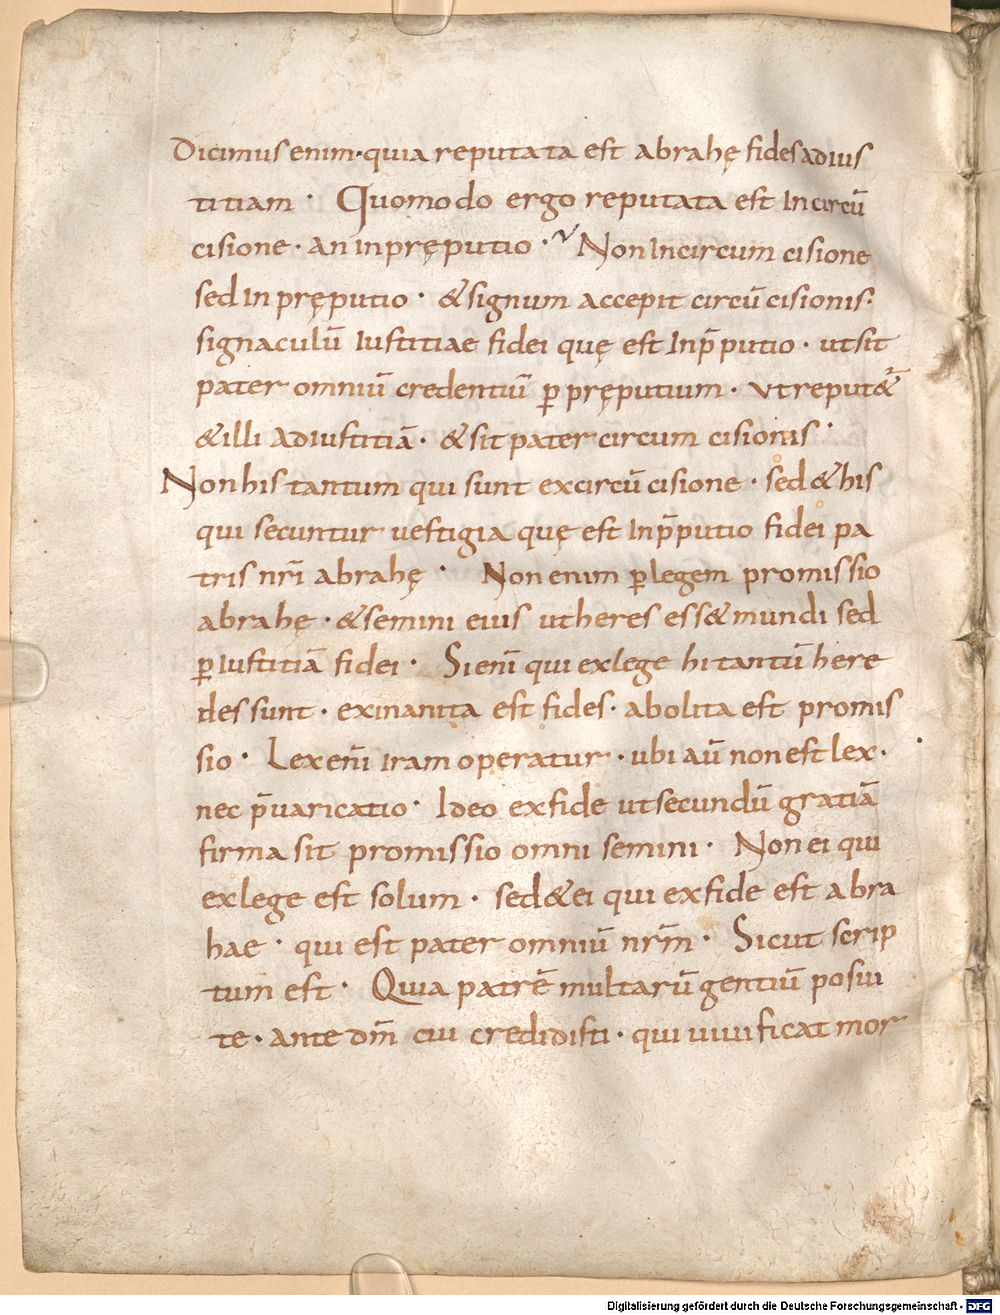 Dicimus enim · quia reputata est abrahę fides ad ius
titiam · Quomodo ergo reputata est In circū
cisione · an in pręputio · Non In circum cisione
sed In pręputio · & signum accepit circū cisionis ·
signaculū Iustitiae fidei quę est In p̄putio · ut sit
pater omniū credentiū ꝑ pręputium · ut reput&̄
& illi ad iustitiā · & sit pater circum cisionis ·
Non his tantum qui sunt ex circū cisione · sed & his
qui secuntur uestigia quę est In p̄putio fidei pa
tris nr̄i abrahę · Non enim ꝑ legem promissio
abrahę · & semini eius ut heres ess& mundi sed
ꝑ Iustitiā fidei · Si enī qui ex lege hi tantū here
des sunt · exinanita est fides · abolita est promis
sio · Lex enī iram operatur · ubi aū non est lex ·
nec p̄uaricatio · Ideo ex fide ut secundū gratiā
firma sit promissio omni semini · Non ei qui
ex lege est solum · sed & ei qui ex fide est abra
hae · qui est pater omniū nr̄m · Sicut scrip
tum est · Quia patrē multarū gentiū posui
te · ante dm̄ cui credidisti · qui uiuificat mor
Digitalisierung gefördert durch die Deutsche Forschungsgemeinschaft - DFG